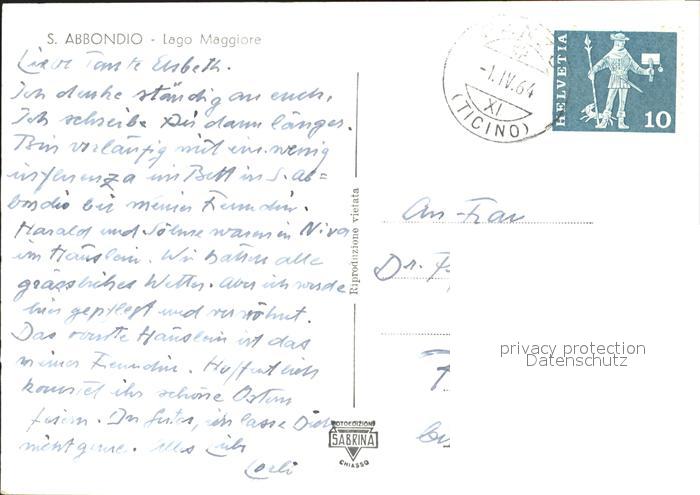 S. ABBONDIO - Lago Maggiore
Liebe Tante Elsbeth.
Ich denke ständig an euch.
Ich schreibe Dir dann länger.
Bin vorläufig mit ein wenig
influenza im Bett in S. ab=
bondio bei meiner Freundin.
Harald und Söhne waren in Niva
im Häuslein. Wir hatten alle
grässliches Wetter. Aber ich werde
hier gepflegt und verwöhnt.
Das Häuslein ist das
meiner Freundin. Hoffentlich
konntet ihr schöne Ostern
feiern. Du Gutes, ich lasse Dich
nicht gerne. Alles Liebe
Riproduzione vietata
FOTOEDIZIONI
SABRINA
CHIASSO
-1.IV.64
XI
(TICINO)
HELVETIA
10
An Frau
Dr.
privacy protection
Datenschutz